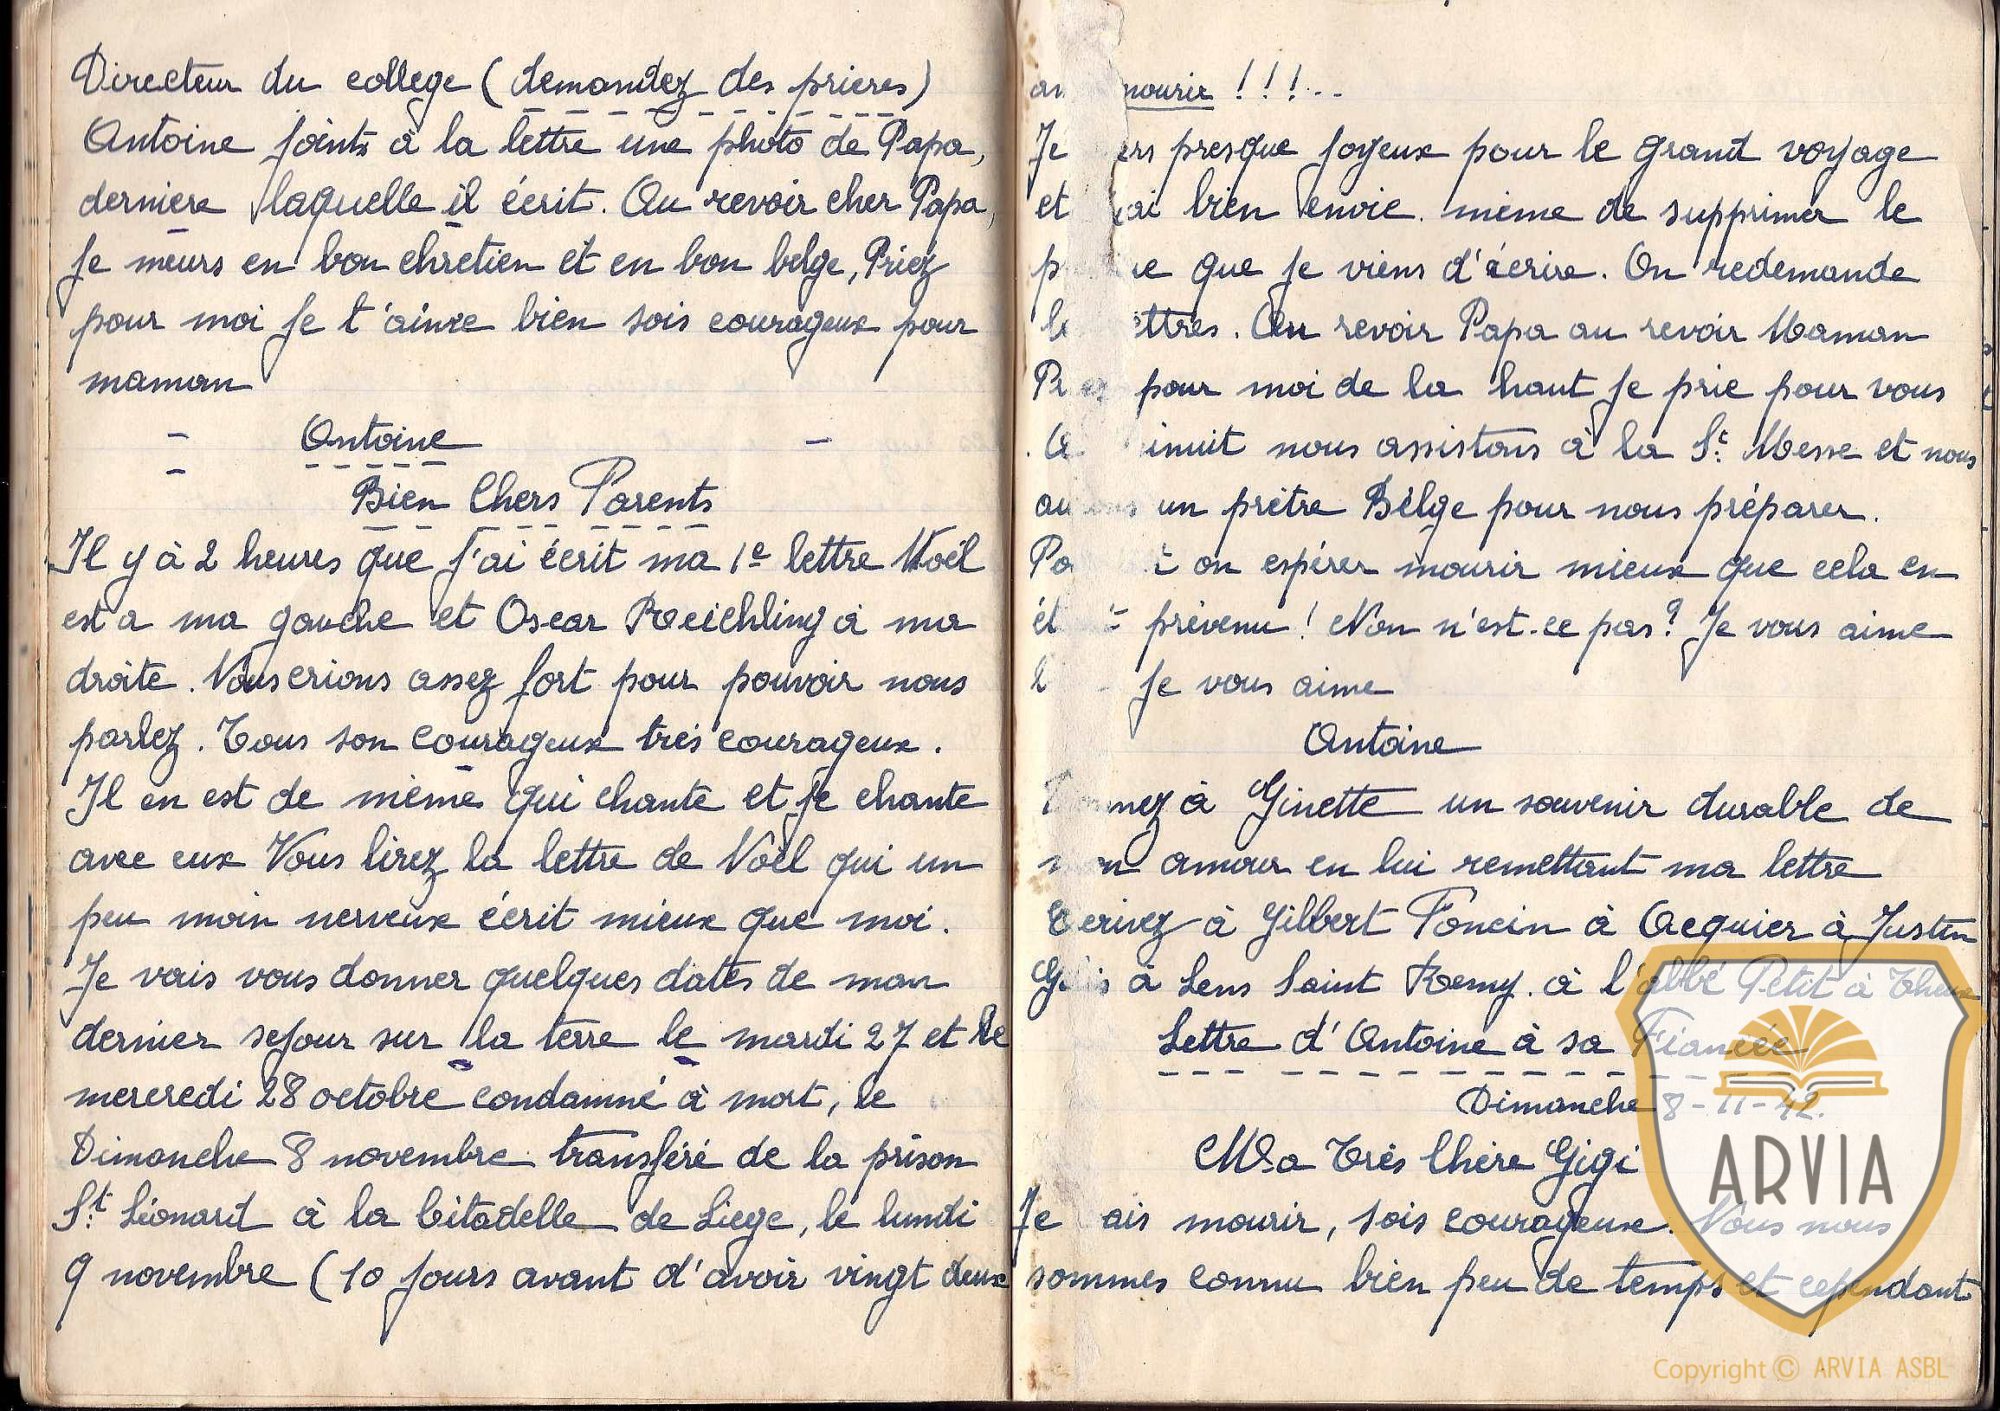 Directeur du college (demandez des prieres)
Antoine joints à la lettre une photo de Papa,
derniere laquelle il écrit. Au revoir cher Papa,
je meurs en bon chretien et en bon belge, Priez
pour moi je t'aime bien sois courageux pour
maman
- Antoine -
-
Bien Chers Parents
Il y à 2 heures que j'ai écrit ma 1e lettre Noël
est a ma gauche et Oscar Reichling à ma
droite. Nous crions assez fort pour pouvoir nous
parlez. Tous son courageux très courageux.
Il en est de même qui chante et je chante
avec eux Vous lirez la lettre de Noël qui un
peu moin nerveux écrit mieux que moi.
Je vais vous donner quelques dates de mon
dernier sejour sur la terre le mardi 27 et le
mercredi 28 octobre condamné à mort, le
Dimanche 8 novembre transféré de la prison
St Léonard à la Citadelle de Liege, le lundi
9 novembre (10 jours avant d'avoir vingt deux
an mourir !!!...
Je ers presque joyeux pour le grand voyage
et ai bien envie même de supprimer le
p e que je viens d'écrire. On redemande
le ettres. Au revoir Papa au revoir Maman
Pr ez pour moi de la haut je prie pour vous
. A inuit nous assistons à la St Messe et nous
au ons un prêtre Bèlge pour nous préparer.
Po t on espérer mourir mieux que cela en
ét t prévenu! Non n'est-ce pas? Je vous aime
je vous aime
Antoine
nnez à Ginette un souvenir durable de
m n amour en lui remettant ma lettre
Ecrivez à Gilbert Foncin à Acquier à Justin
G is à Lens Saint Remy. à l'abbé Petit à Theux
Lettre d'Antoine à sa Fiancée
Dimanche 8-11-42.
Ma Très Chère Gigi
Je ais mourir, sois courageuse. Nous nous
sommes connu bien peu de temps et cependant
ARVIA
Copyright © ARVIA ASBL